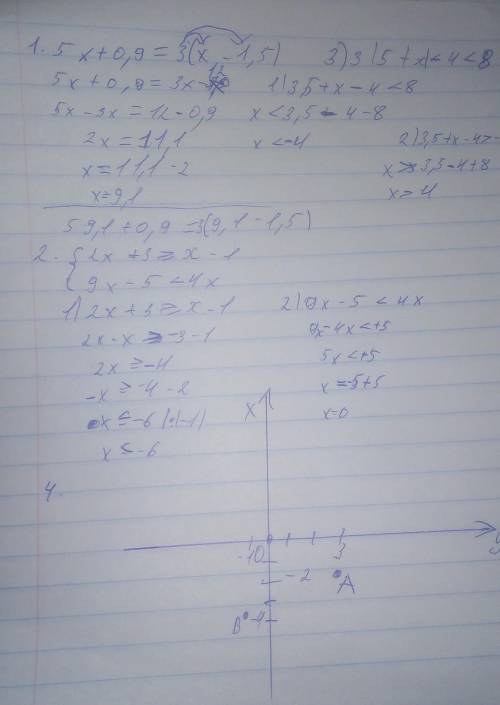 1. 5x+0,9=3(x-1,5)
5x+0,9=3x
5x-3x=12-0,9
2x=11,1
x=11,1-2
x=9,1
59,1+0,9=3(9,1-1,5)
3) 3|5+x|<4<8
1) 3,5+x-4<8
x<3,5-4-8
x<-4
2) 3,5+x-4>-
x>3,5-4+8
x>4
2. {2x+3≥x-1
{9x-5<4x
1) 2x+3≥x-1
2x-x≥-3-1
2x≥-4
-x≥-4-2
x≤-6 |·(-1)
x≤-6
2) 9x-5<4x
9x-4x<+5
5x<+5
x=-5+5
x=0
4.
x
y
-1 0 3
-2 A
B -4